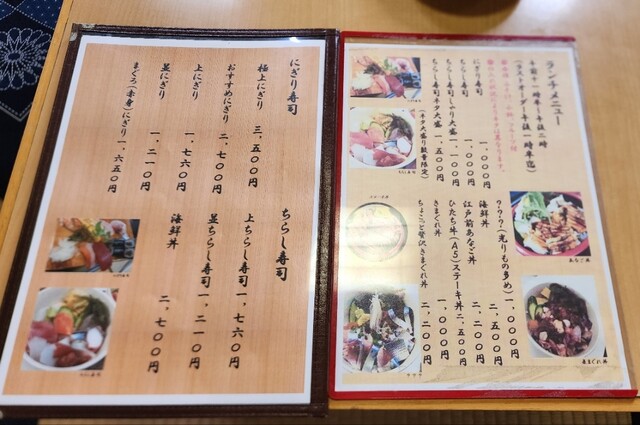 にぎり寿司
極上にぎり 三、五〇〇円
おすすめにぎり 二、七〇〇円
上にぎり 一、七六〇円
並にぎり 一、二一〇円
まぐろ(赤身)にぎり 一、六五〇円
ちらし寿司
上ちらし寿司 一、七六〇円
並ちらし寿司 一、二一〇円
海鮮丼 二、七〇〇円
ランチメニュー
午前十一時半~午後二時
(ラストオーダー午後一時半迄)
にぎり寿司 一、〇〇〇円
ちらし寿司 一、〇〇〇円
ちらし寿司しゃり大盛 一、一〇〇円
ちらし寿司ネタ大盛 一、五〇〇円
(ネタ大盛り数量限定)
???(光りもの多め) 一、〇〇〇円
海鮮丼 二、五〇〇円
江戸前あなご丼 二、二〇〇円
ひたち牛(A5)ステーキ丼 二、五〇〇円
きまぐれ丼 一、〇〇〇円
ちょこっと贅沢きまぐれ丼 二、二〇〇円
あなご丼
きまぐれ丼